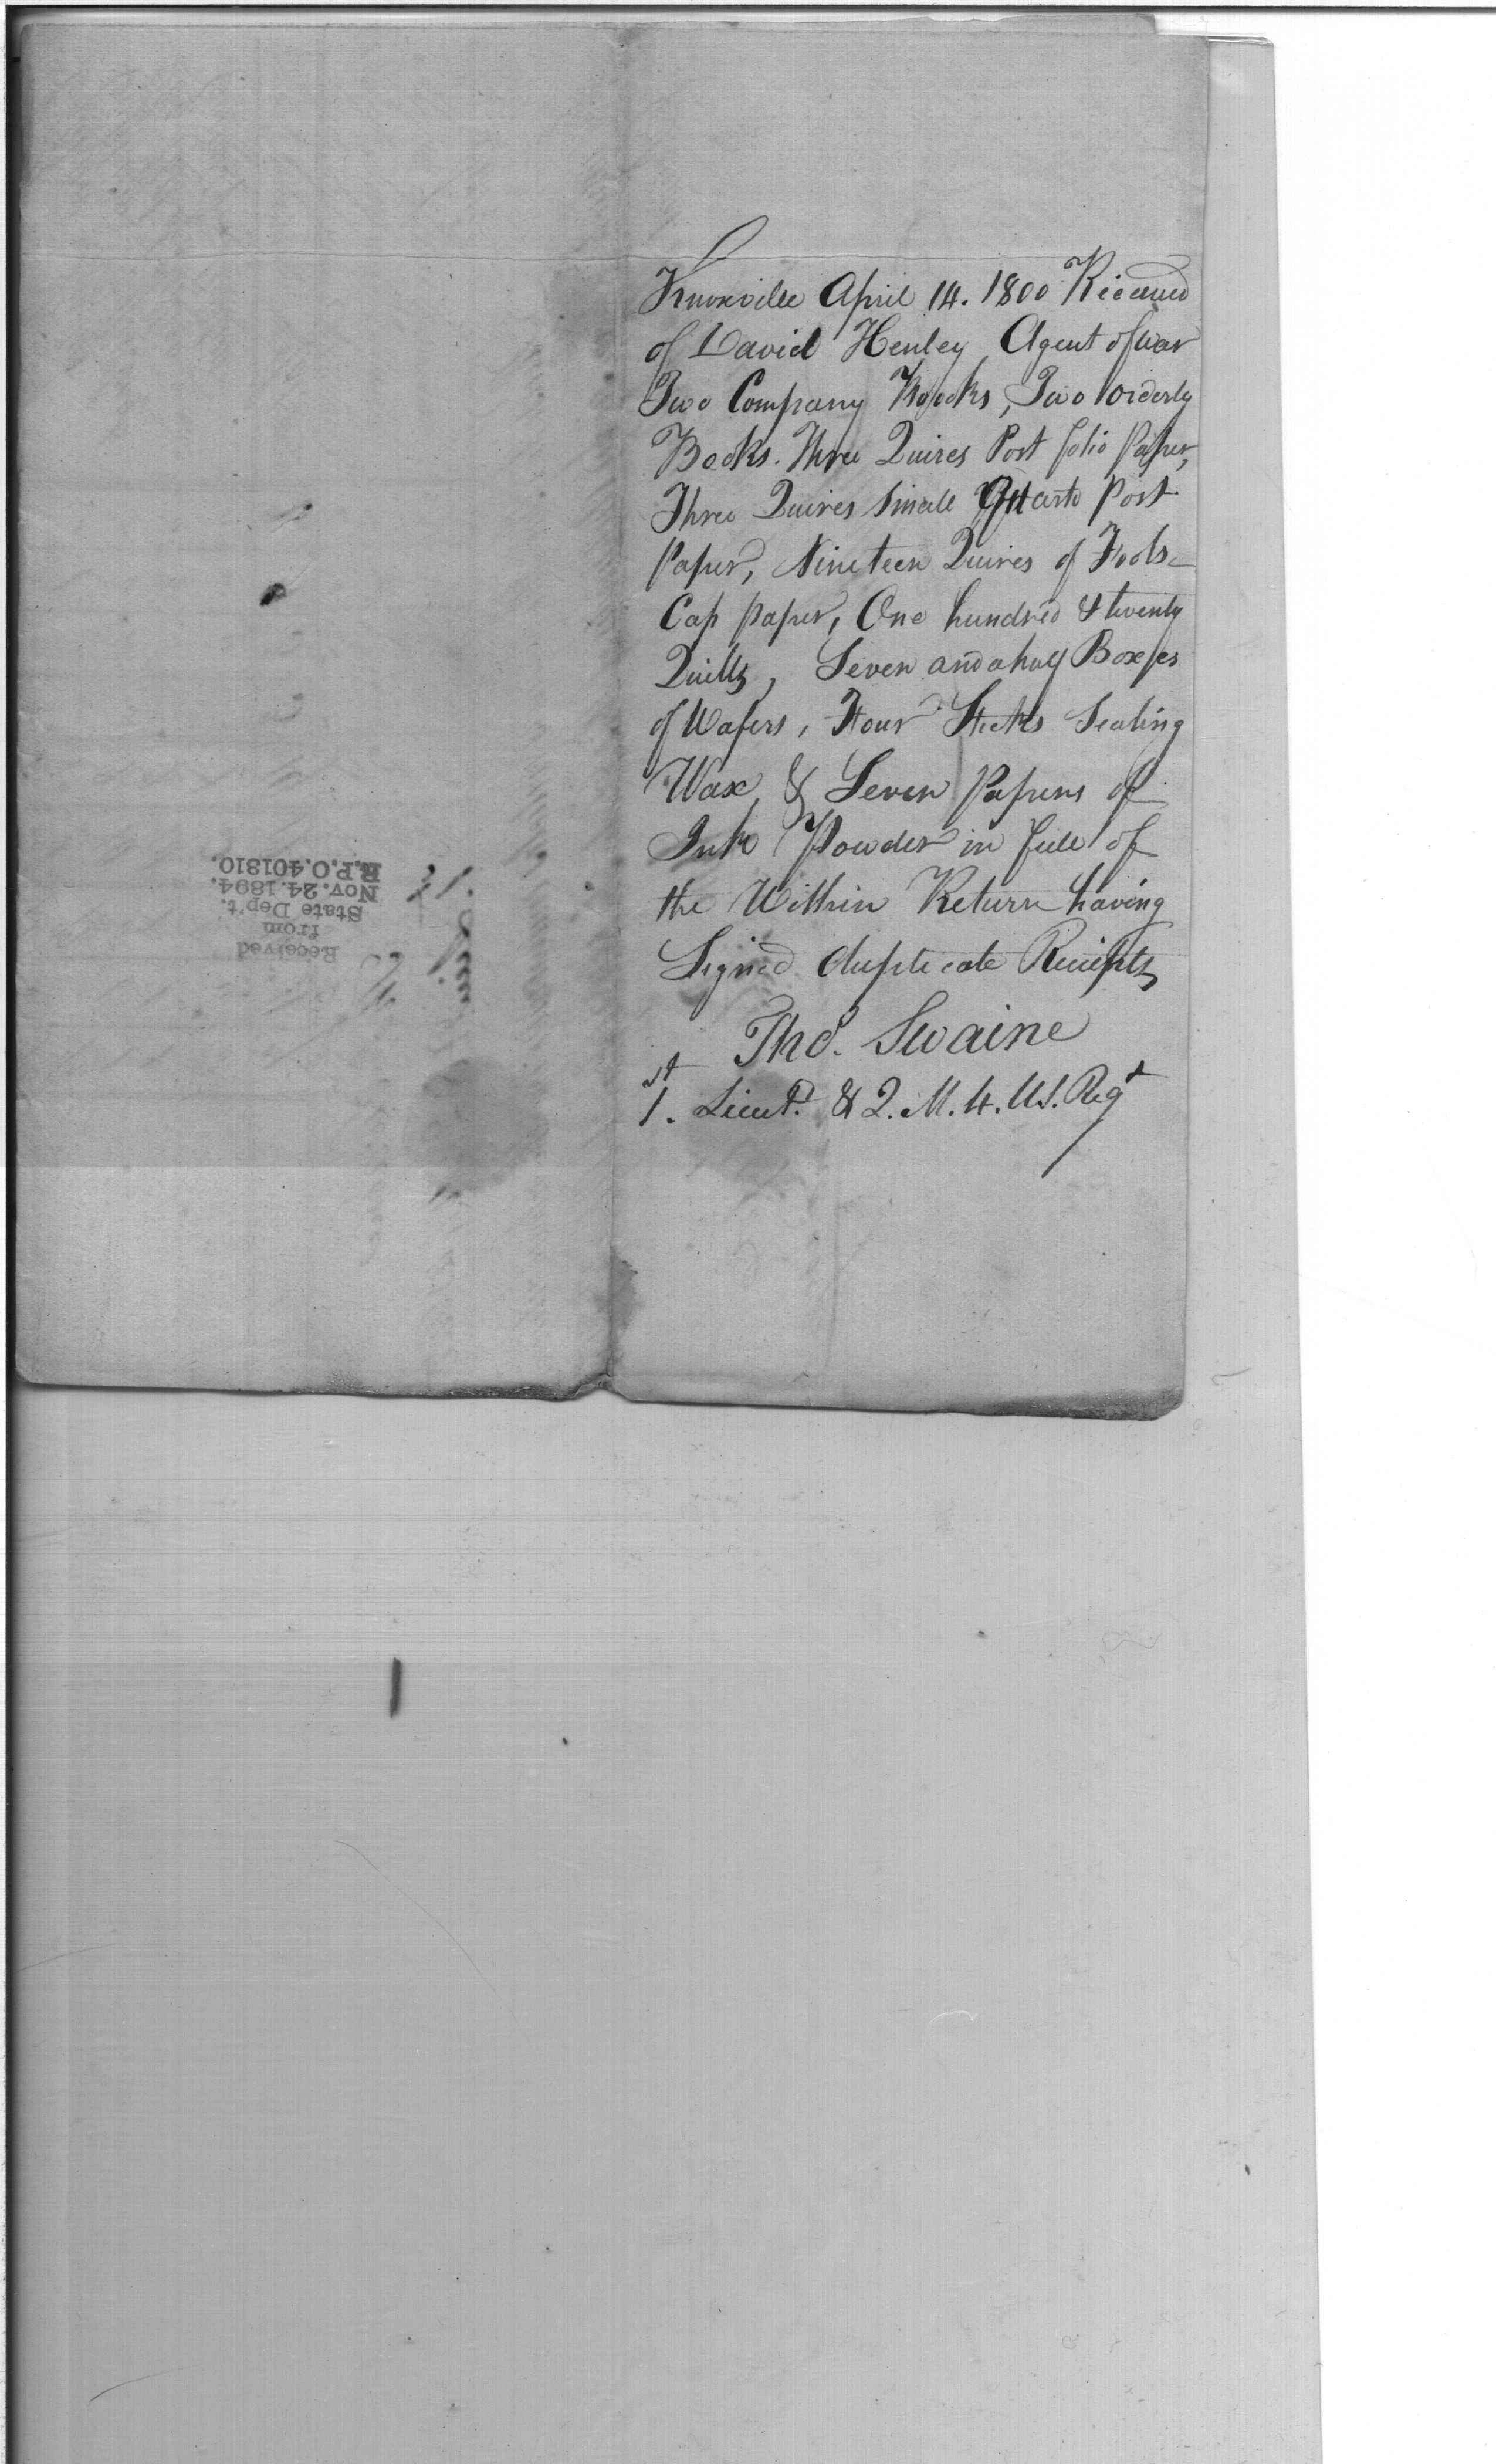 Knoxville April 14. 1800 Received
of David Henley Agent of War
Two Company Books, Two Orderly
Books. Three Quires Post folio Paper,
Three Quires Small Quarto Post
Paper, Nineteen Quires of Fools-
Cap paper, One hundred & twenty
Quills, Seven and a half Boxes
of Wafers, Four Sticks Sealing
Wax, & Seven Papers of
Ink Powder in full of
the Within Return having
Signed duplicate Receipts
Thos. Swaine
1st. Lieut. & Q. M. 4. U.S. Regt
Received
from
State Dep't.
Nov. 24. 1894.
R.P.O. 401810.